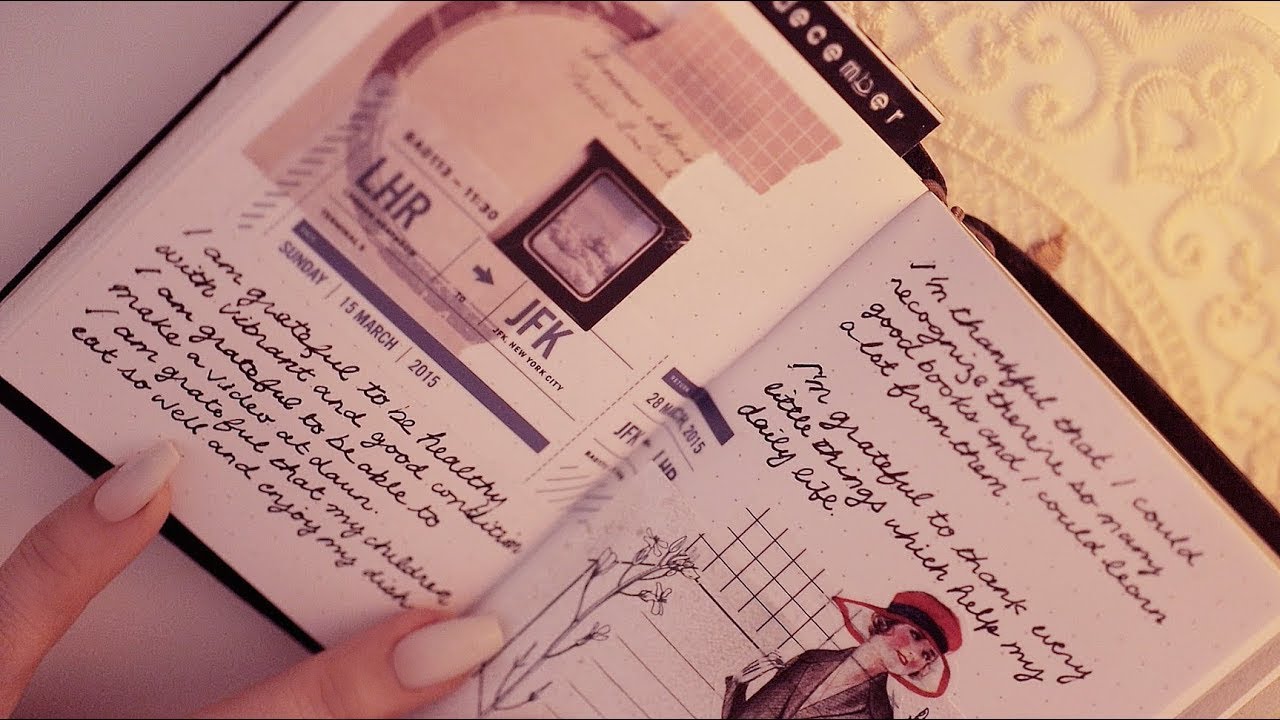 december
BA0113 – 11:30
LHR
TERMINAL 5
TO
JFK
JFK, NEW YORK CITY
SUNDAY | 15 MARCH | 2015
RETURN
28 MRCH, 2015
JFK
LHR
I am grateful to be healthy
with vibrant and good condition
I am grateful to be able to
make a video at daun.
I am grateful that my children
eat so well and enjoy my dish
I'm thankful that I could
recognize there're so many
good books and I could learn
a lot from them.
I'm grateful to thank every
little things which help my
daily life.